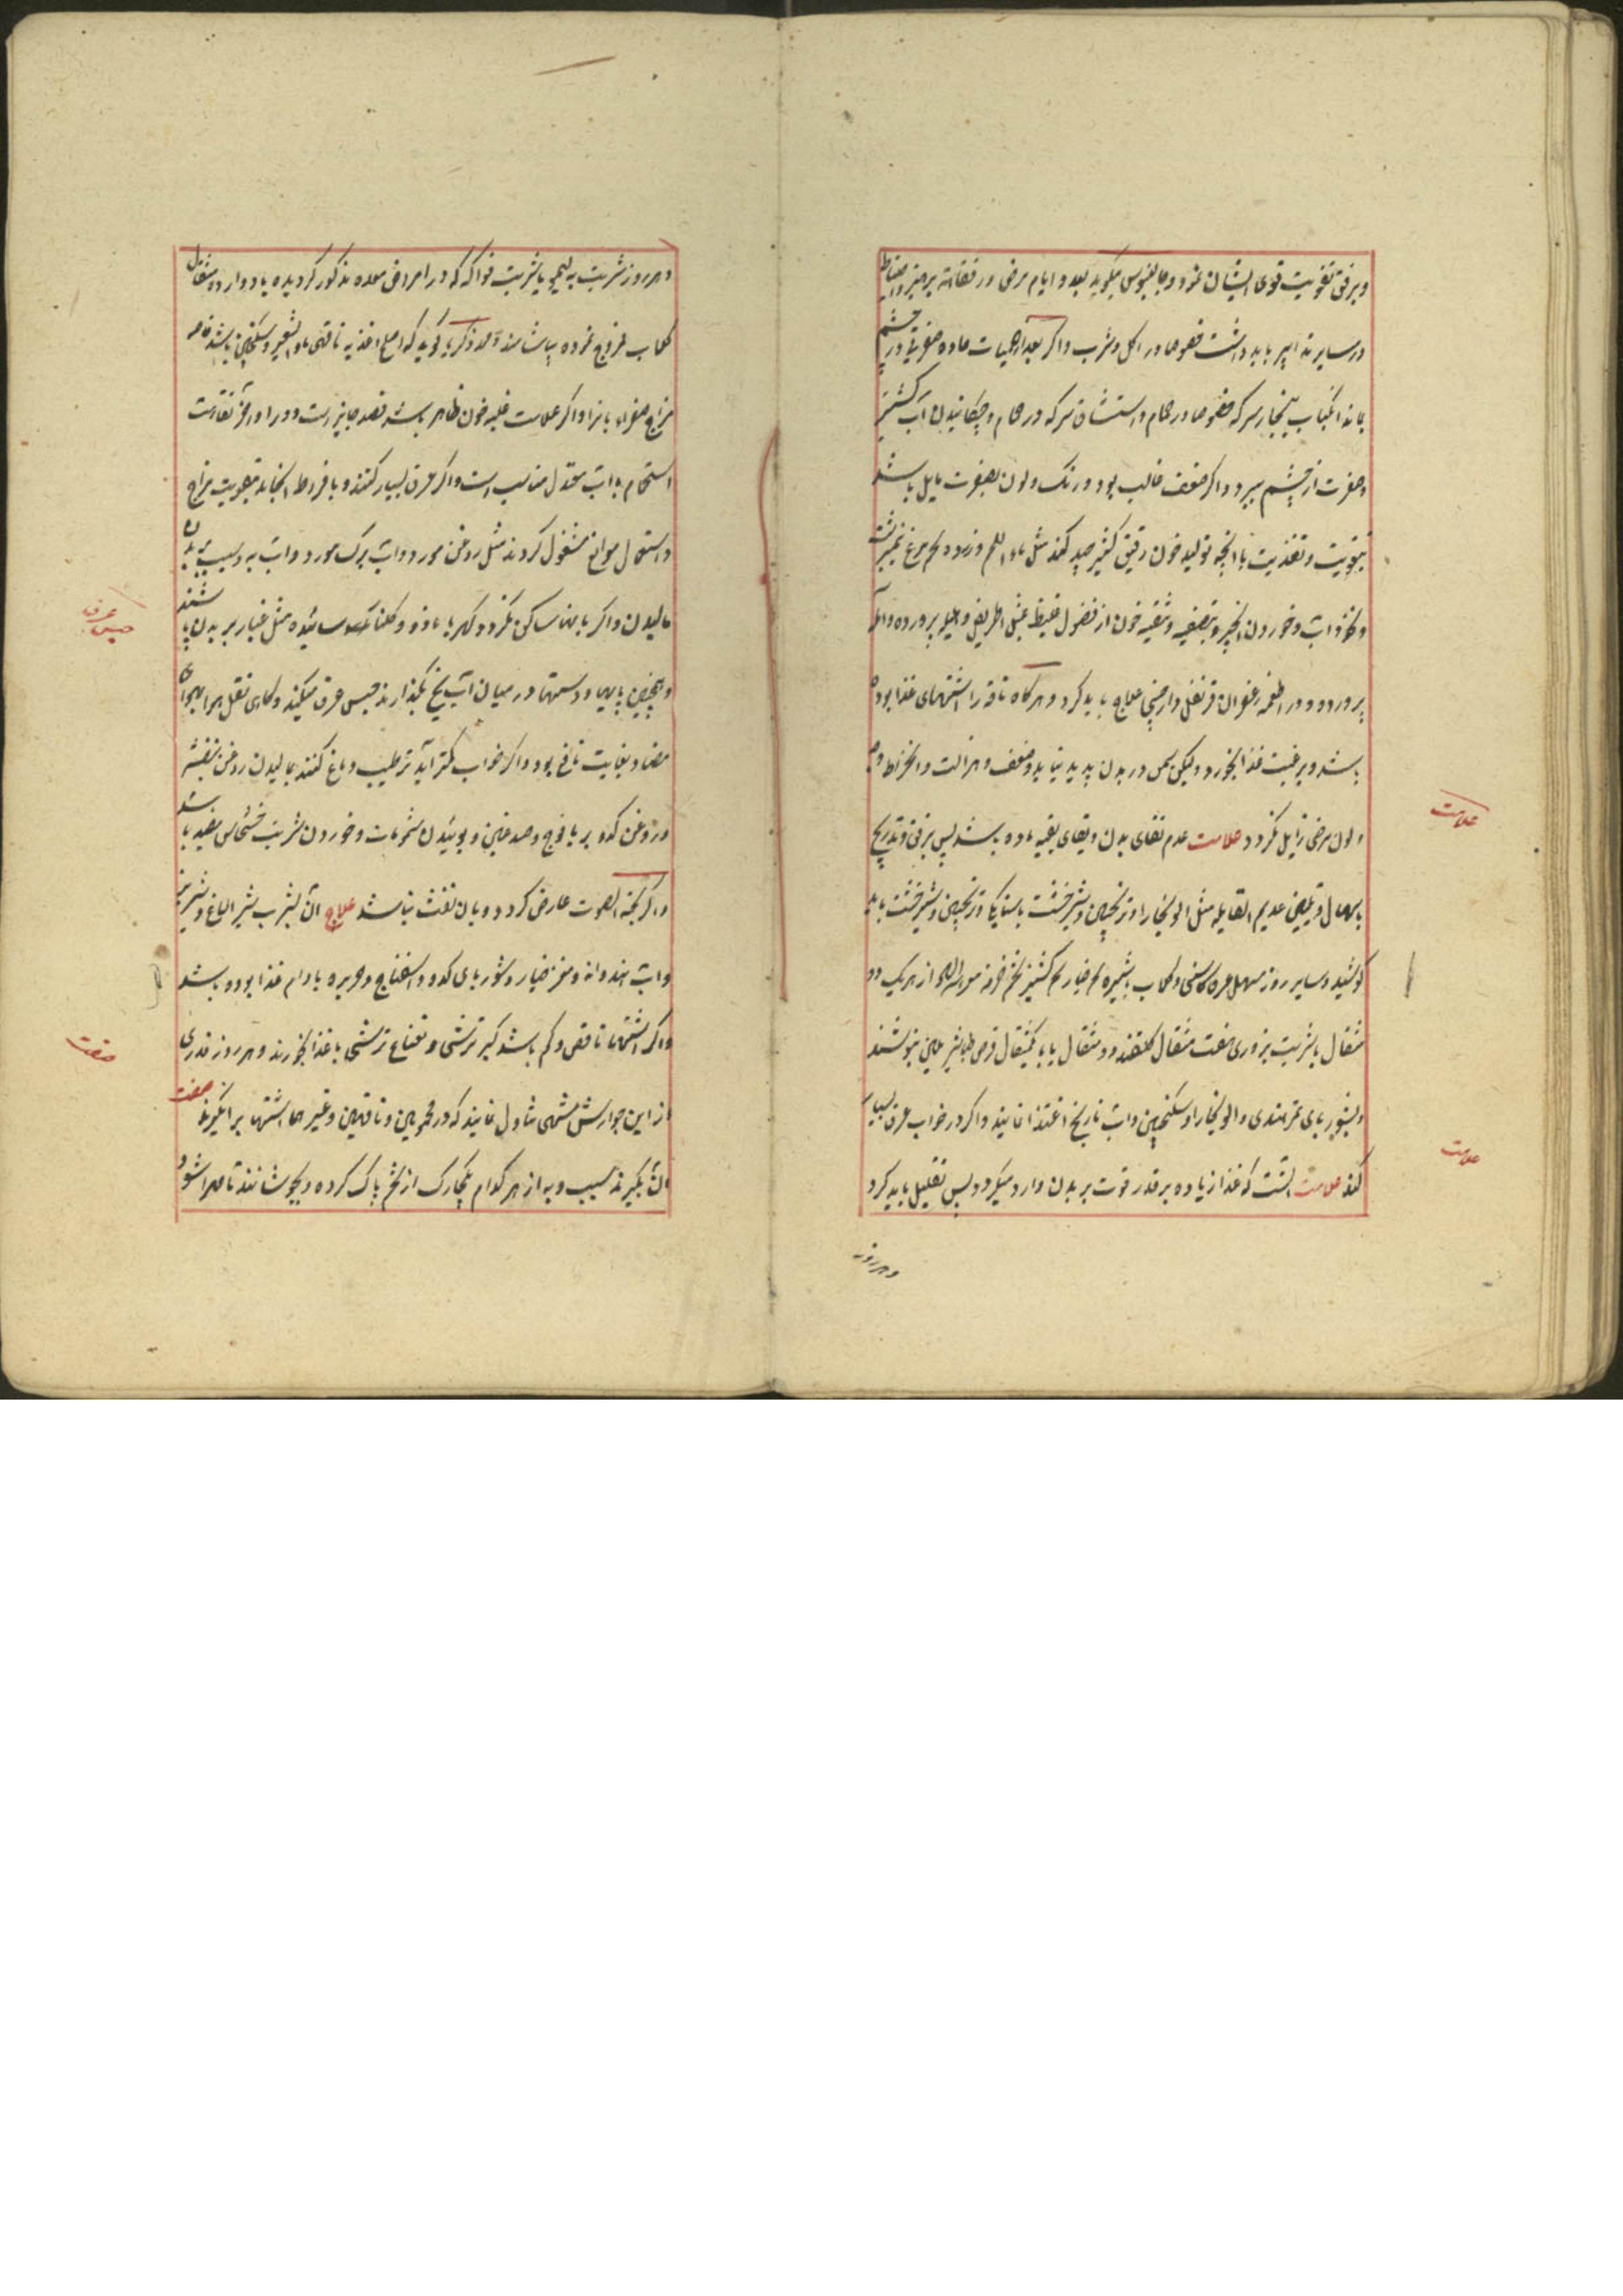 و برفق تقویت قوی ایشان نمود و جالینوس میگوید بعد و ایام مرض در نقاهة پرهیز و احتیاط
در سایر تدابیر باید داشت خصوصا در اکل و شرب و اگر بعد از حمیات حاده صفرتی در چشم
بماند انکباب ببخار سرکه خصوصا در حمام و استنشاق سرکه در حمام و چکانیدن آب کشنیز
صفرت از چشم میبرد و اگر ضعف غالب بود و رنگ و لون بصفرت مایل باشد
بتقویت و تغذیت بآنچه تولید خون رقیق کثیر جید کند مثل ماء اللحم و زرده تخم مرغ نیمبرشت
و نخوداب و خوردن انجیر و بتصفیه و تنقیه خون از فضول غلیظ بمثل اطریفل و هلیله پرورده و آمله
پرورده و در اطعمه زعفران قرنفل دارچینی علاج باید کرد و هرگاه ناقه را اشتهای غذا بوده
باشد و برغبت غذا بخورد و لیکن سمن در بدن پدید نیاید و ضعف و هزالت و انخراط وجه
و لون مرض زایل نگردد علامت عدم نقای بدن و بقای بقیه ماده باشد پس برفق و تدریج
باسهال و تلیین عدیم الغایله مثل آلو بخارا و ترنجبین و شیرخشت یا سنا مکی و ترنجبین و شیرخشت باید
کوشید و سایر روز مسهل عرق کاسنی و گلاب بشیره تخم خیار تخم کشنیز تخم خرفه از هریک دو
مثقال یا شربت بزوری هفت مثقال گلقند دو مثقال یا با یکمثقال قرص طباشیر ملین بنوشند
و بشوربای تمر هندی و آلو بخارا و سکنجبین و آب نارنج اغتذا نمایند و اگر در خواب عرق بسیار
کند علامت آنست که غذا زیاده بر قدر قوت بر بدن وارد میگردد پس تقلیل باید کرد
و هر روز
علامت
علامت
و هر روز شربت به لیمو یا شربت فواکه که در امراض معده مذکور گردیده با دوازده مثقال
گلاب ممزوج نموده بیاشامند محمد ذکریا گوید که اصلح اغذیه ناقهین ماء الشعیر و سکنجبین باشد خاصه
مزاج صفراء را و اگر علامت غلبه خون ظاهر باشد فصد جایز است و در اواخر نقاهت
استحمام بآب معتدل مناسب است و اگر عرق بسیار کنند و بافراط انجامد بتقویت مزاج
و استعمال موانع مشغول گردند مثل روغن مورد و آب برگ مورد و آب به و سیب بر بدن
مالیدن و اگر باینها ساکن نگردد کهربا مازو و گلنار سائیده مثل غبار بر بدن پاشند
و همچنین پایها و دستها در میان آب یخ بگذارند حبس عرق میکند و گاهی نقل هوا بهوای
مضاد بغایت نافع بود و اگر خواب کمتر آید ترطیب دماغ کنند بمالیدن روغن بنفشه
و روغن کدو بر یافوخ و صدغین و بوئیدن شمومات و خوردن شربت خشخاش مفید باشد
و اگر بحة الصوت عارض گردد و با آن نفث نباشد علاج آن بشرب شیر الاغ و شیر بز
و آب هندوانه و مغز خیار و شوربای کدو و اسفناج و حریره بادام غذا بوده باشد
و اگر اشتها ناقص و کم باشد کبر ترشی و نعناع ترشی با غذا بخورند و هر روز قدری
از این جوارش مشهی تناول نمایند که در محمومین و ناقهین و غیرها اشتها برانگیزد صفت
آن بگیرند سیب و به از هر کدام یکچارک از تخم پاک کرده و بجوشانند تا مهرا شود
حبس عرق
صفت